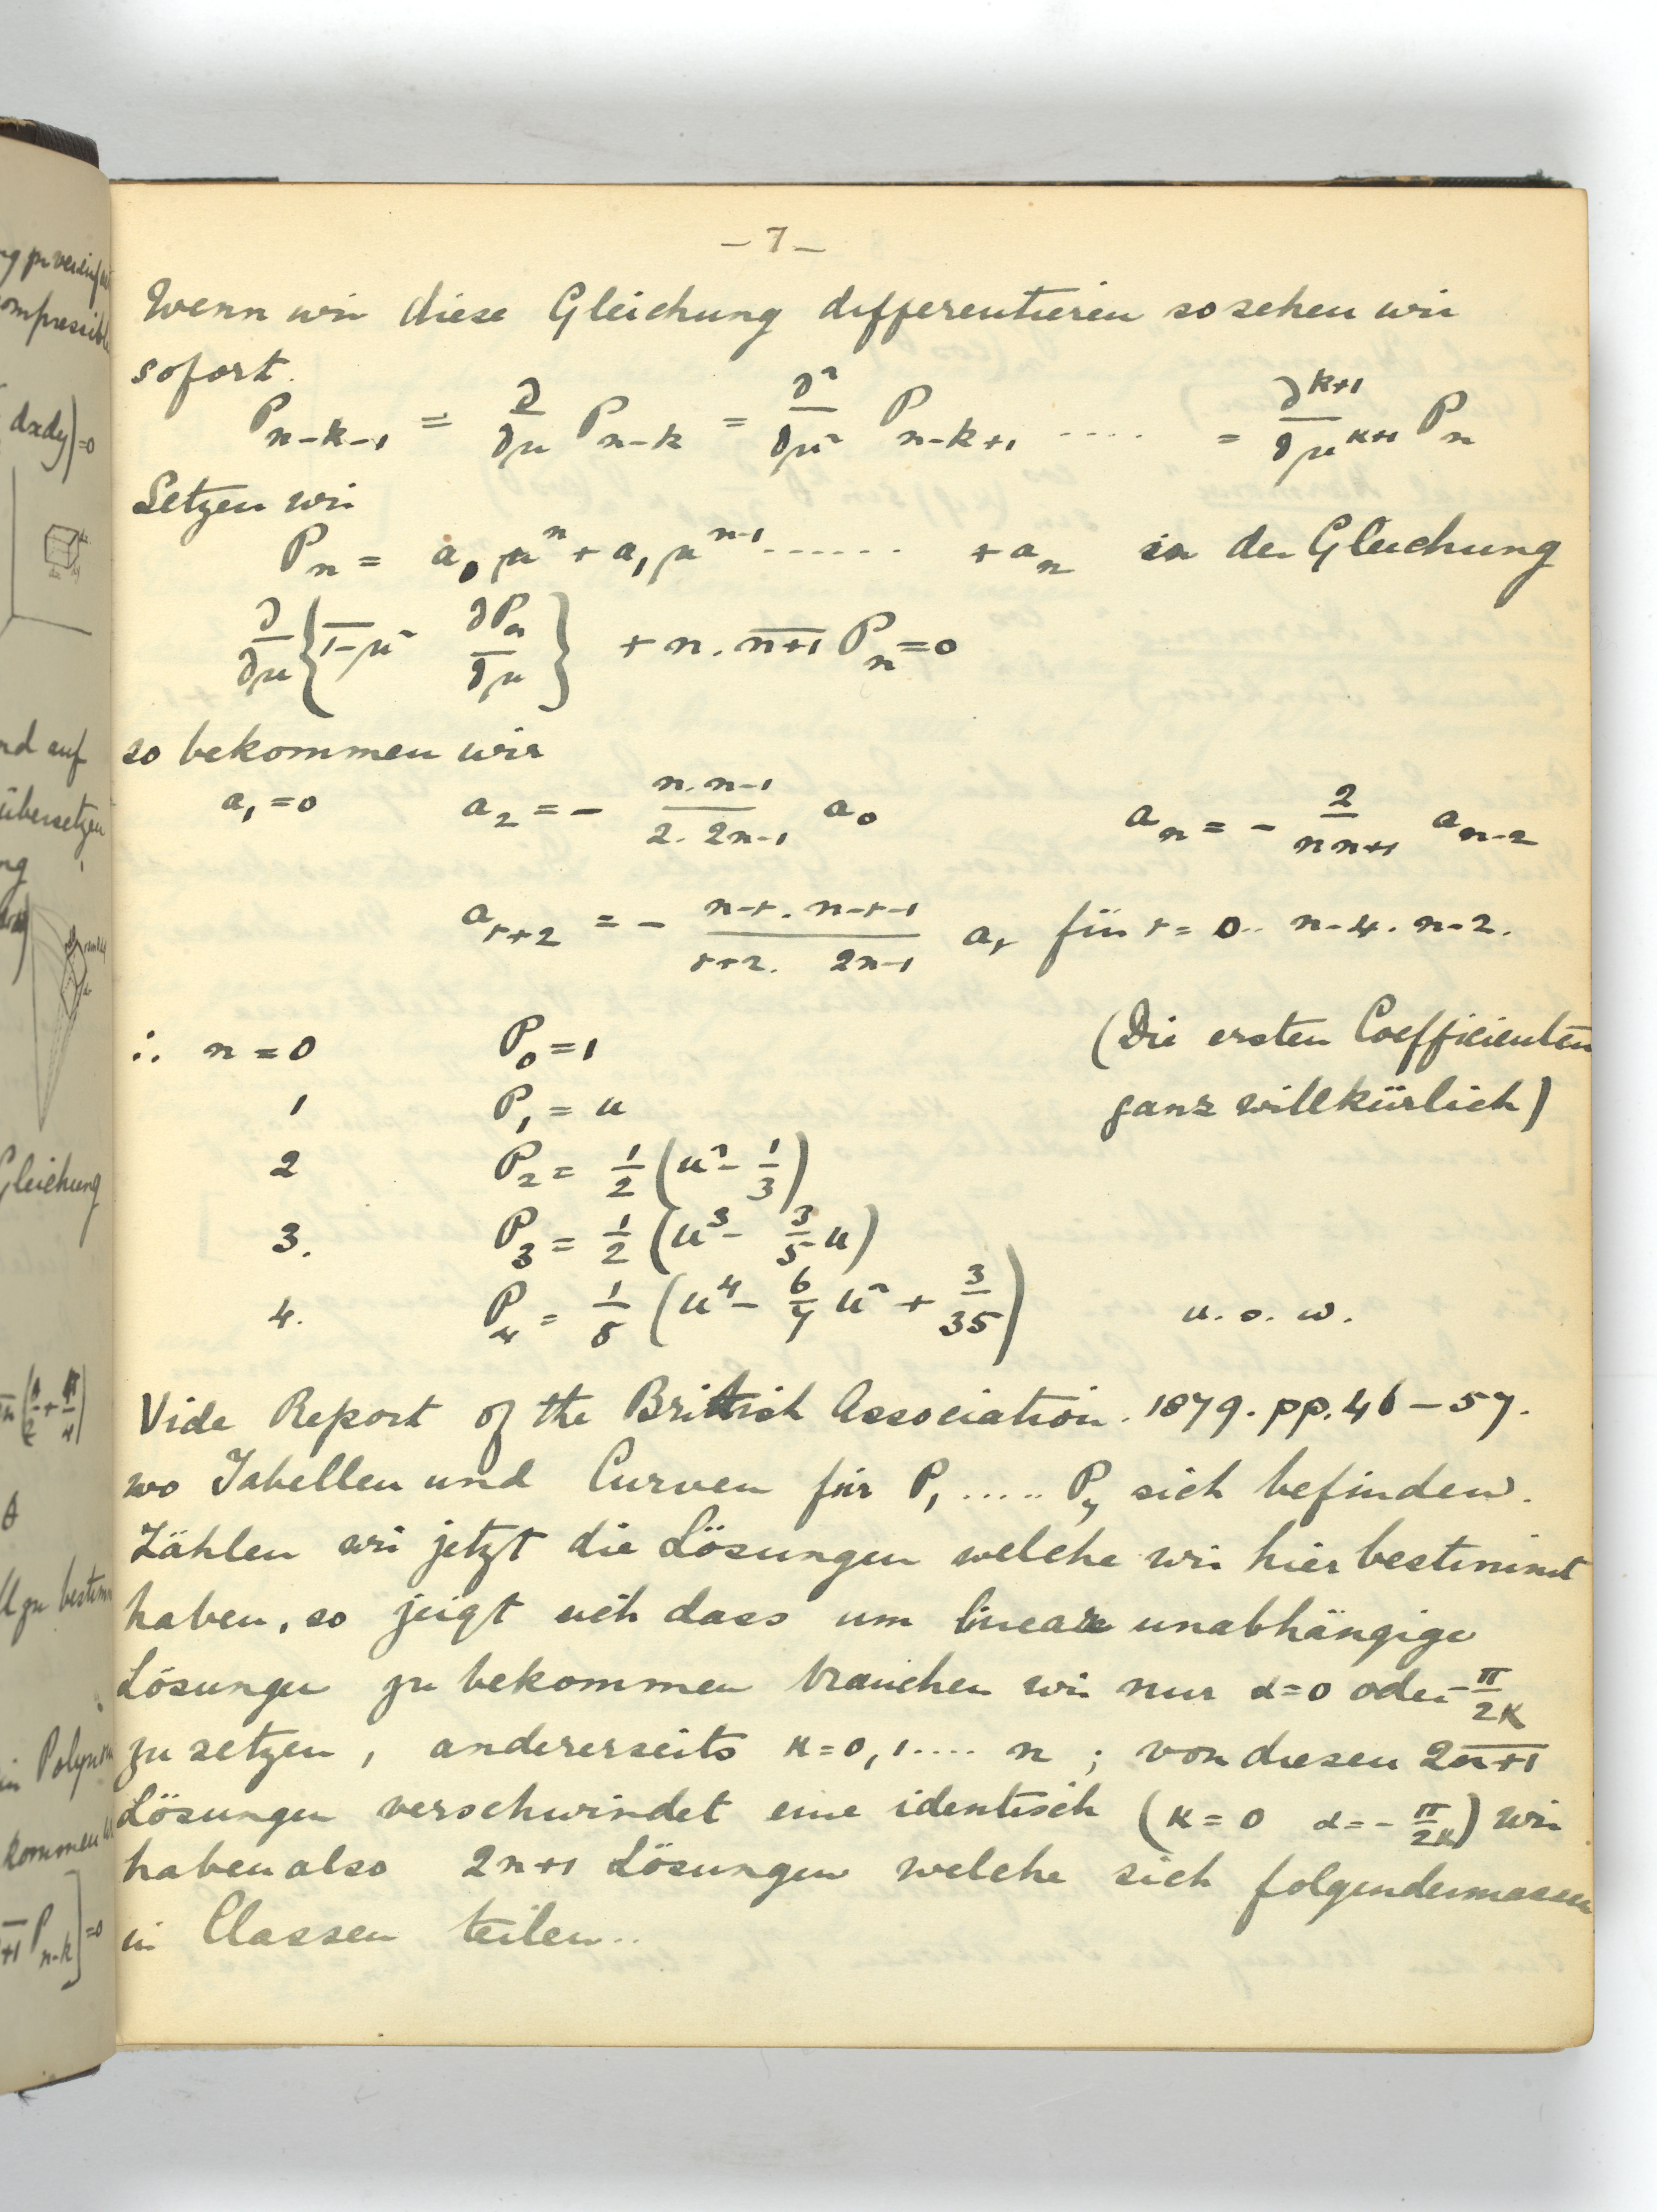 – 7 –
Wenn wir diese Gleichung differentieren so sehen wir
sofort.
P_{n-k-1} = ∂/∂μ P_{n-k} = ∂²/∂μ² P_{n-k+1} ..... = ∂^{k+1}/∂μ^{k+1} P_n
Setzen wir
P_n = a_0 μ^n + a_1 μ^{n-1} ...... + a_n in der Gleichung
∂/∂μ { \overline{1-μ²} ∂P_n/∂μ } + n. \overline{n+1} P_n = 0
so bekommen wir
a_1 = 0 a_2 = - \frac{n. n-1}{2. 2n-1} a_0 a_n = - \frac{2}{n n+1} a_{n-2}
a_{r+2} = - \frac{n-r. n-r-1}{r+2. 2n-1} a_r für r = 0.. n-4. n-2.
∴ n = 0 P_0 = 1 (Die ersten Coefficienten
1 P_1 = u ganz willkürlich)
2 P_2 = 1/2 (u² - 1/3)
3. P_3 = 1/2 (u³ - 3/5 u)
4. P_4 = 1/8 (u⁴ - 6/7 u² + 3/35) u. s. w.
Vide Report of the British Association. 1879. pp. 46 – 57.
wo Tabellen und Curven für P_1 ..... P_7 sich befinden.
Zählen wir jetzt die Lösungen welche wir hier bestimmt
haben, so zeigt sich dass um lineare unabhängige
Lösungen zu bekommen brauchen wir nur α=0 oder -π/2κ
zu setzen, andererseits κ=0, 1.... n ; von diesen 2\overline{n+1}
Lösungen verschwindet eine identisch (κ = 0 α = - π/2κ) wir
haben also 2n+1 Lösungen welche sich folgendermassen
in Classen teilen..